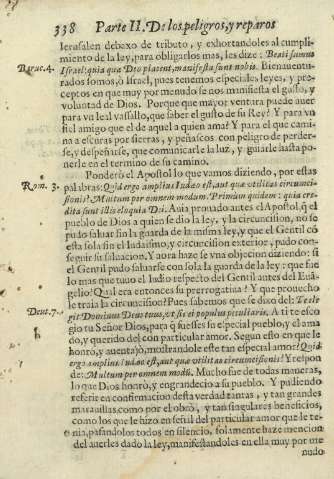 338 Parte II. De los peligros, y reparos
Ierusalen debaxo de tributo, y exhortandoles al cumpli-
miento de la ley, para obligarlos mas, les dize: Beati sumus
Baruc. 4. Israel: quia quæ Deo placent, manifesta sunt nobis. Bienauentu-
rados somos, ò Israel, pues tenemos especiales leyes, y pre-
ceptos en que muy por menudo se nos manifiesta el gusto, y
voluntad de Dios. Porque que mayor ventura puede auer
para vn leal vassallo, que saber el gusto de su Rey? Y para vn
fiel amigo que el de aquel a quien ama? Y para el que cami-
na a escuras por sierras, y peñascos con peligro de perder-
se, y despeñarse, que comunicarle la luz, y guiarle hasta po-
nerle en el termino de su camino.
Ponderò el Apostol lo que vamos diziendo, por estas
Rom. 3. palabras: Quid ergo amplius Iudæo est, aut quæ vtilitas circunci-
sionis? Multum per omnem modum. Primum quidem: quia cre-
dita sunt illis eloquia Dei. Auia prouado antes el Apostol, q̃ el
pueblo de Dios a quien se dio la ley, y la circuncision, no se
pudo saluar sin la guarda de la misma ley, y que el Gentil cō
esta sola sin el Iudaismo, y circuncision exterior, pudo con-
seguir su saluacion. Y aora haze se vna objecion diziendo: si
el Gentil pudo saluarse con sola la guarda de la ley: que fue
lo mas que tuuo el Iudio respecto del Gentil antes del Euā-
gelio? Qual era entonces su prerrogatiua? Y que prouecho
le traìa la circuncision? Pues sabemos que se dixo del: Te ele-
Deut. 7. git Dominus Deus tuus, vt sis ei populus peculiaris. A ti te esco
gio tu Señor Dios, para q̃ fuesses su especial pueblo, y el ama
do, y querido del con particular amor. Segun esto en que le
honrò, y auentajò, mostrandole este tan especial amor? Quid
ergo amplius Iudæo est, aut quæ vtilitas circuncisionis? Y respon
de: Multum per omnem modũ. Mucho fue de todas maneras,
lo que Dios honrò, y engrandecio a su pueblo. Y pudiendo
referir en confirmacion desta verdad tantas, y tan grandes
marauillas como por el obrò, y tan singulares beneficios,
como los que le hizo en señal del particular amor que le te-
nia, pasandolos todos en silencio, solamente haze mencion
del auerles dado la ley, manifestandoles en ella muy por me
nudo